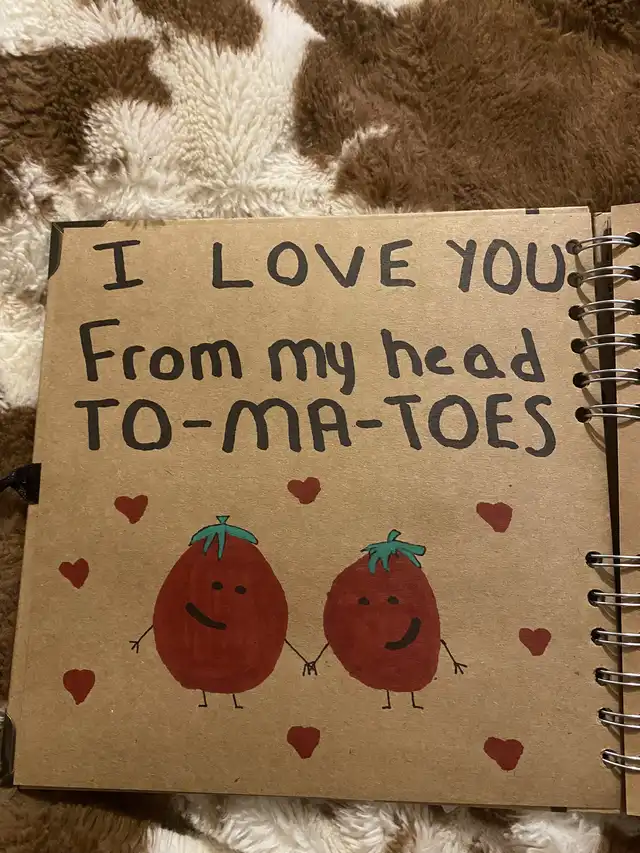 I LOVE YOU
From my head
TO-MA-TOES